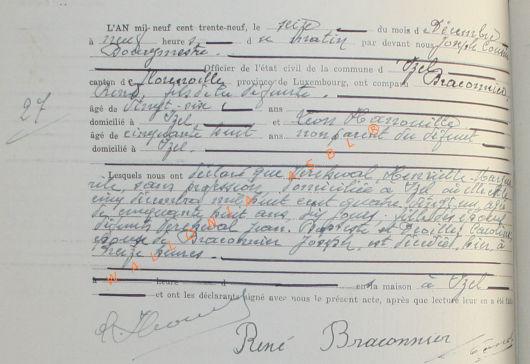 27
L'AN mil-neuf cent trente-neuf, le seize du mois de Décembre
à neuf heure s d u matin par devant nous Joseph
Bourgmestre
Officier de l'état civil de la commune d' Izel
canton de Florenville province de Luxembourg, ont comparu Braconnier
René, fils de la défunte
âgé de vingt-six ans
domicilié à Izel et Léon Hanouille
âgé de cinquante huit ans non parent du défunt
domicilié à Izel.
Lesquels nous ont déclaré que Perskwal Henriette
rite, sans profession, domiciliée à Izel où elle
cinq décembre mil huit cent quatre vingt un, âgée
de cinquante huit ans, dix jours, époux
défunts Jean Baptiste et Caroline
épouse de Braconnier Joseph, est décédée hier à
heures.
WALLONIA ASBL
à heure d en sa maison à Izel
et ont les déclarants signé avec nous le présent acte, après que lecture leur en a été fait
René Braconnier